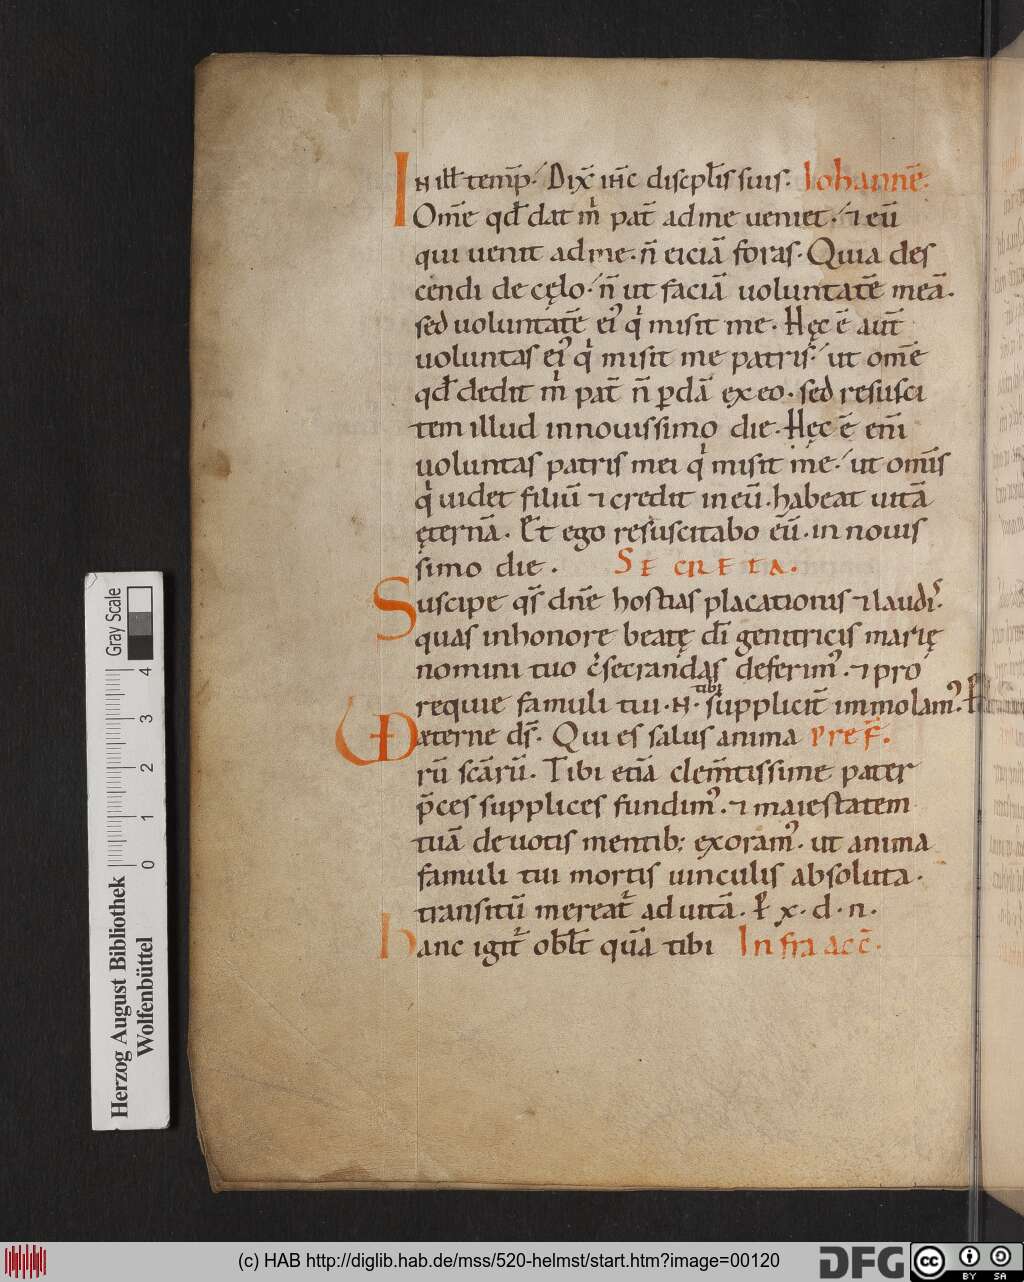 In ill̅ temp̅. Dix̅ ih̅c discpl̅is suis. Iohanne̅.
Om̅e qd̅ dat m̅ pat̅ ad me ueniet. ⁊ eu̅
qui uenit ad me. n̅ eicia̅ foras. Quia des
cendi de cęlo. n̅ ut facia̅ uoluntate̅ mea̅.
sed uoluntate̅ eiꝰ qͥ misit me. Hęc e̅ aut̅
uoluntas eiꝰ qͥ misit me patris. ut om̅e
qd̅ dedit mͥ pat̅ n̅ ꝑda̅ ex eo. sed resusci
tem illud in nouissimo die. Hęc e̅ eni̅
uoluntas patris mei qͥ misit me. ut om̅is
qͥ uidet filiu̅ ⁊ credit in eu̅. habeat uita̅
ęterna̅. Et ego resuscitabo eu̅. in nouis
simo die. SECRETA.
Suscipe qs̅ dn̅e hostias placationis ⁊ laudiˢ.
quas in honore beatę di̅ genitricis marię
nomini tuo c̅secrandas deferimꝰ. ⁊ pro
tibi
requie famuli tui .N. supplicit̅ immolamꝰ. P̅
VD æterne ds̅. Qui es salus anima Pref̅.
ru̅ sca̅ru̅. Tibi etia̅ clem̅tissime pater
p̅ces supplices fundimꝰ. ⁊ maiestatem
tua̅ deuotis mentib; exoramꝰ. ut anima
famuli tui mortis uinculis absoluta.
transitu̅ mereat᷑ ad uita̅. P̅ x. d. n.
hanc igit᷑ obl̅t̅ qua̅ tibi Infra acc̅.
Gray Scale
0 1 2 3 4
Herzog August Bibliothek
Wolfenbüttel
(c) HAB http://diglib.hab.de/mss/520-helmst/start.htm?image=00120
DFG
cc
BY SA